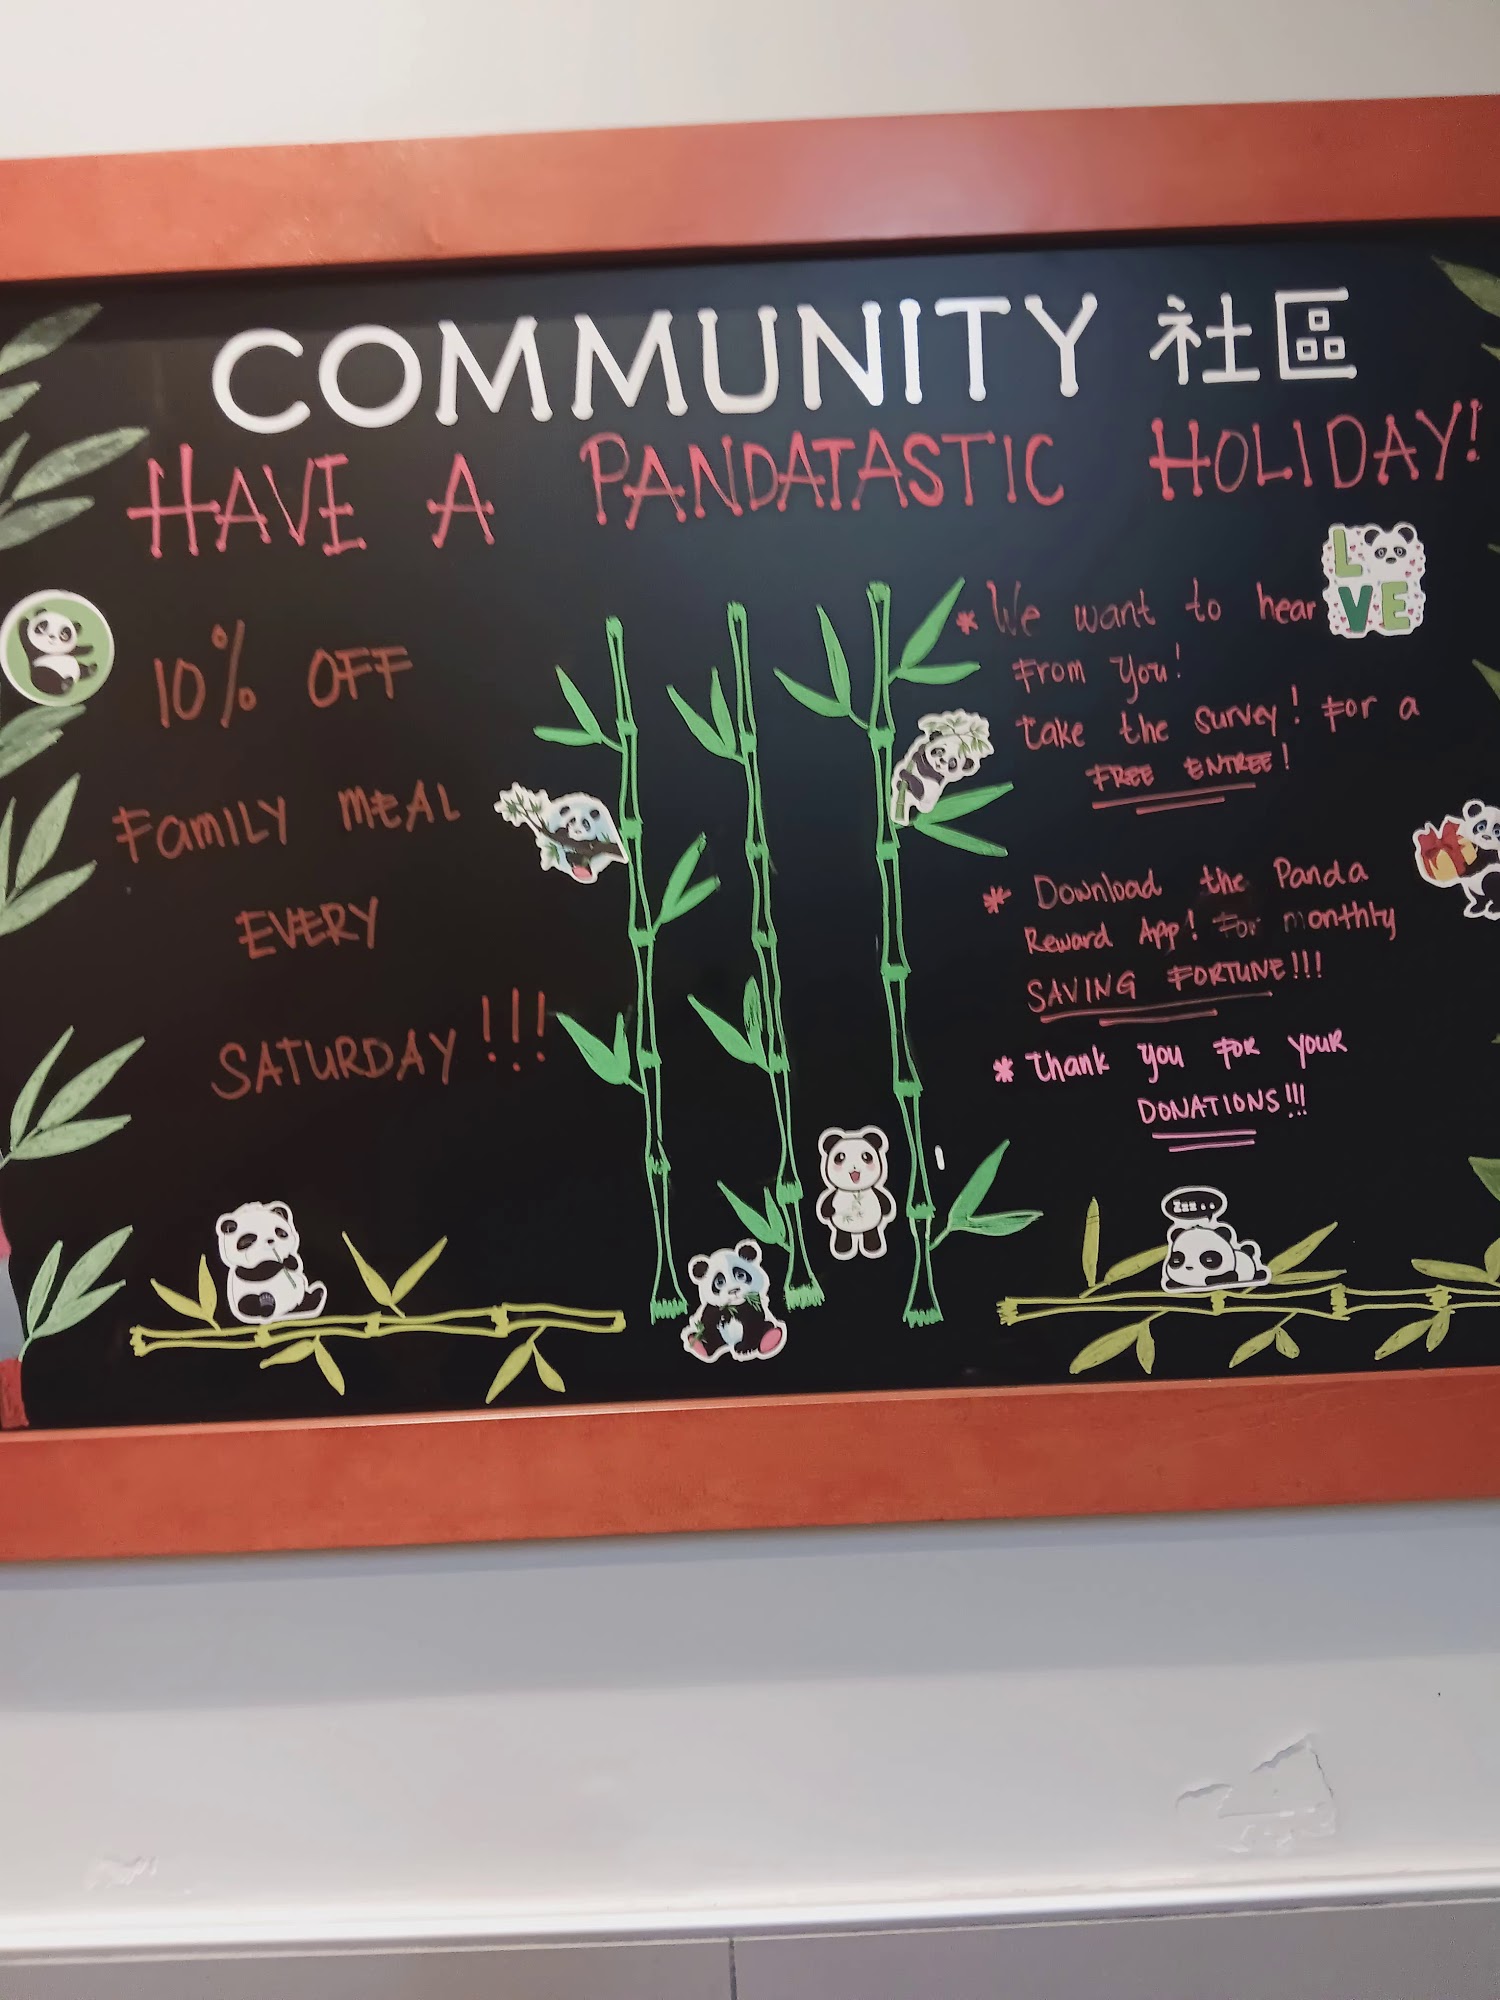 COMMUNITY 社區
HAVE A PANDATASTIC HOLIDAY!
10% OFF
FAMILY MEAL
EVERY
SATURDAY!!!
* We want to hear
From you!
Take the survey! For a
FREE ENTREE!
* Download the Panda
Reward App! For monthly
SAVING FORTUNE!!!
* Thank you FOR YOUR
DONATIONS!!!
LOVE
Zzz..